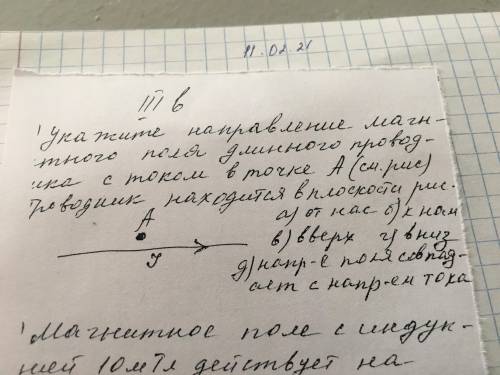 11.02.21
III в
1 Укажите направление магн-
тного поля длинного провод-
ика с током в точке А (см.рис)
Проводник находится в плоскости рис.
А
а) от нас б) к нам
в) вверх г) вниз
I
д) напр-е поля совпад-
ает с напр-ем тока
1 Магнитное поле с индук-
цией 10 мТл действует на-